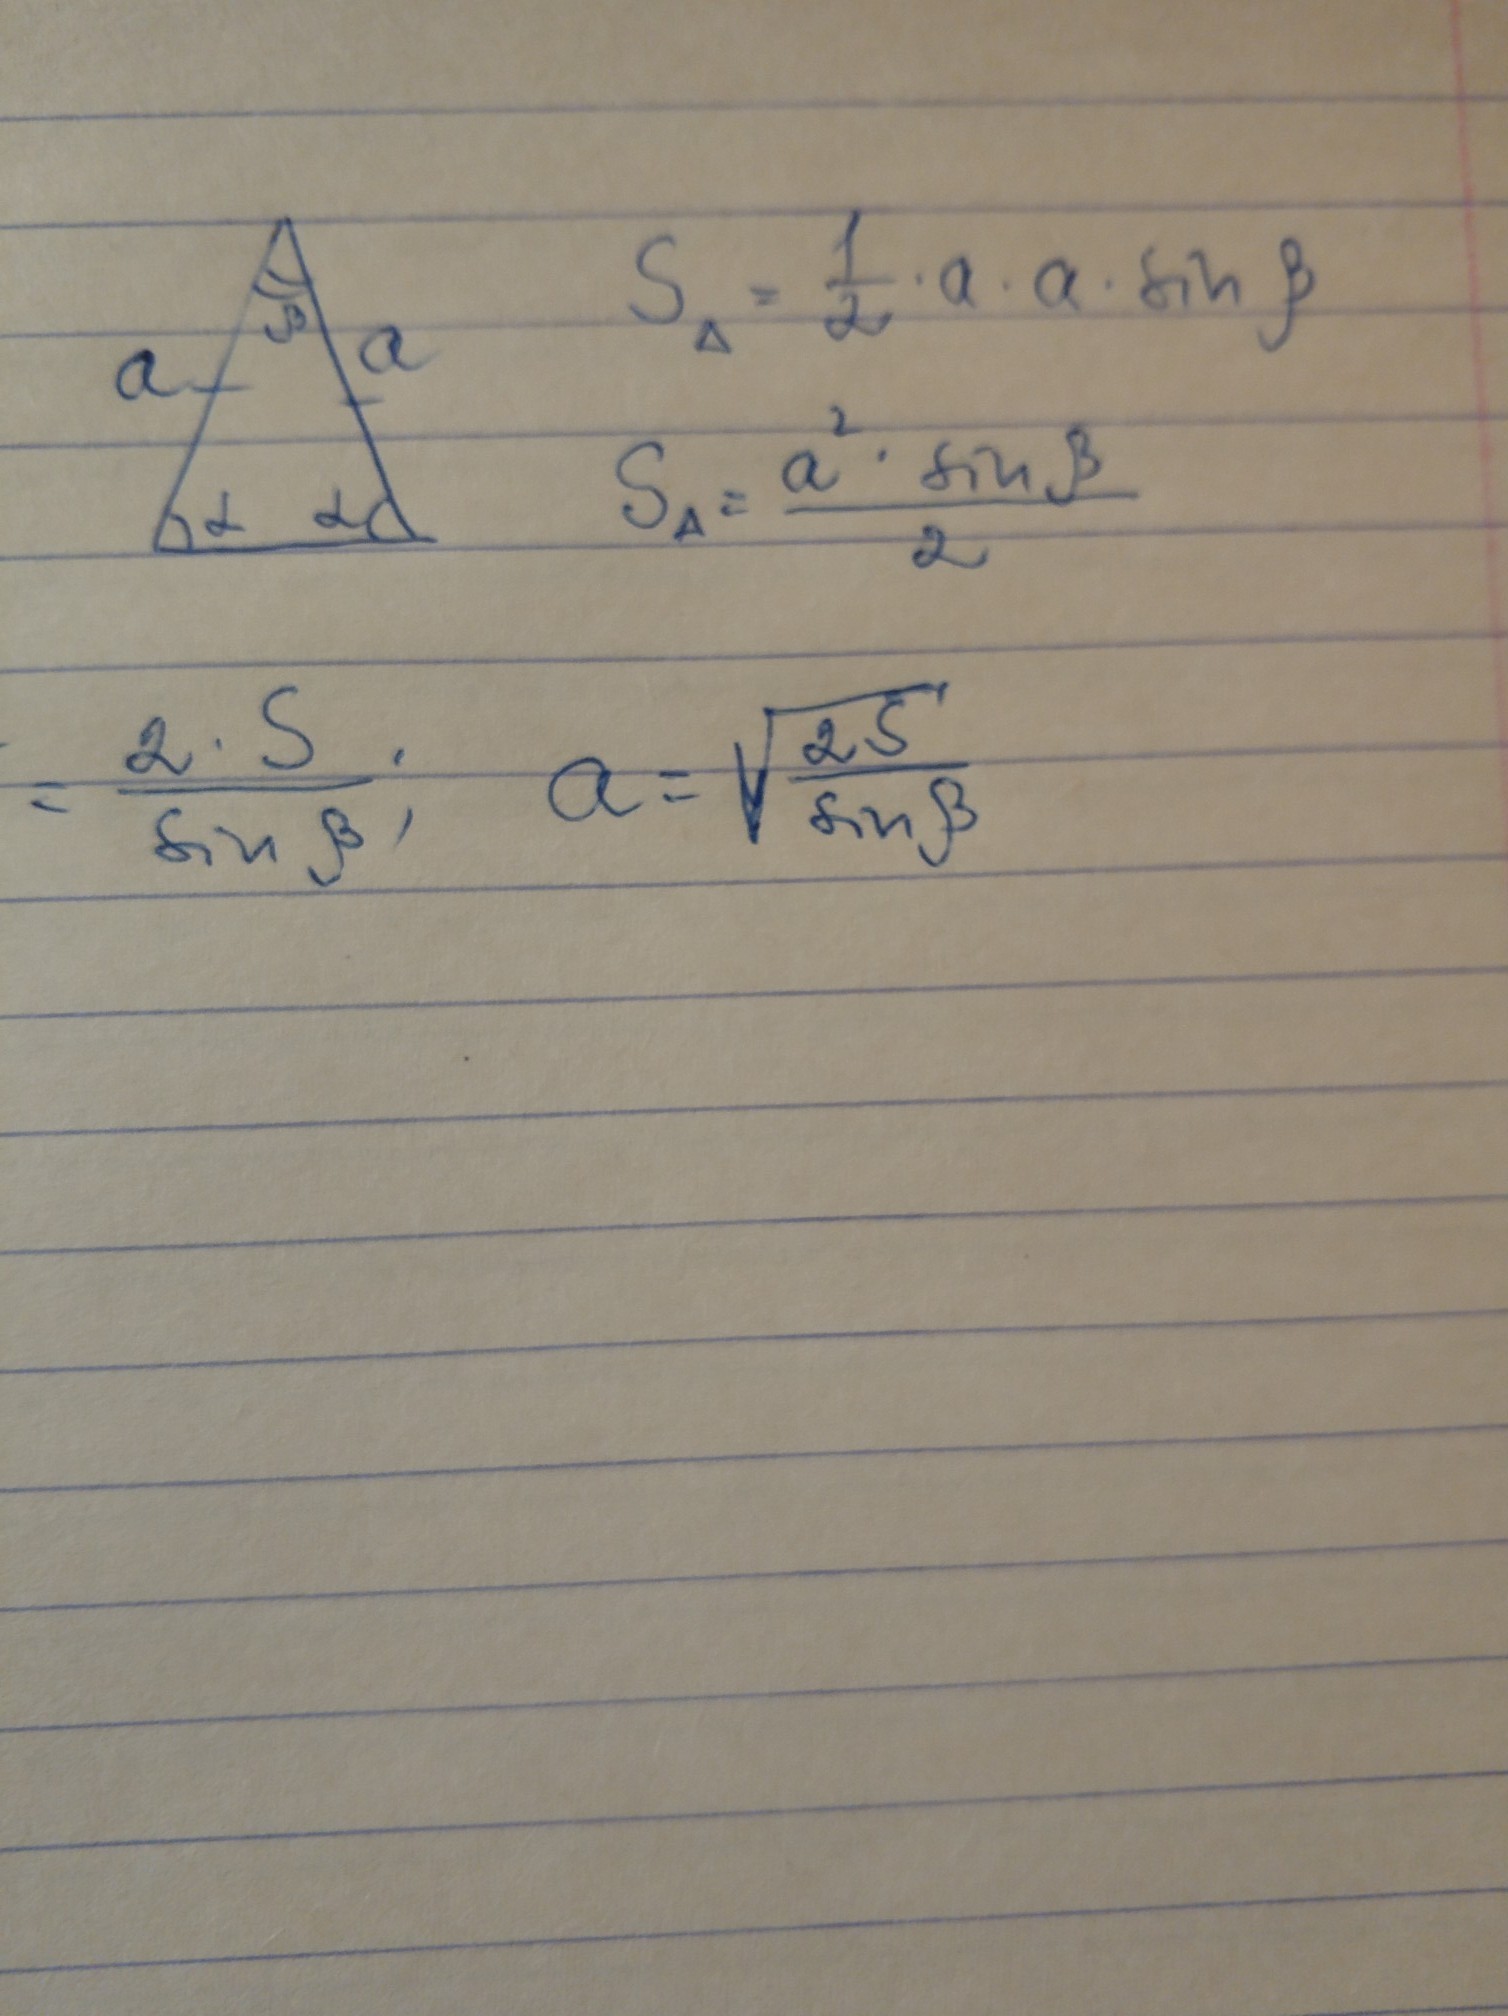 β
a a
α α
S△ = 1/2 · a · a · sin β
S△ = a² · sin β / 2
= 2 · S / sin β ; a = √(2S / sin β)